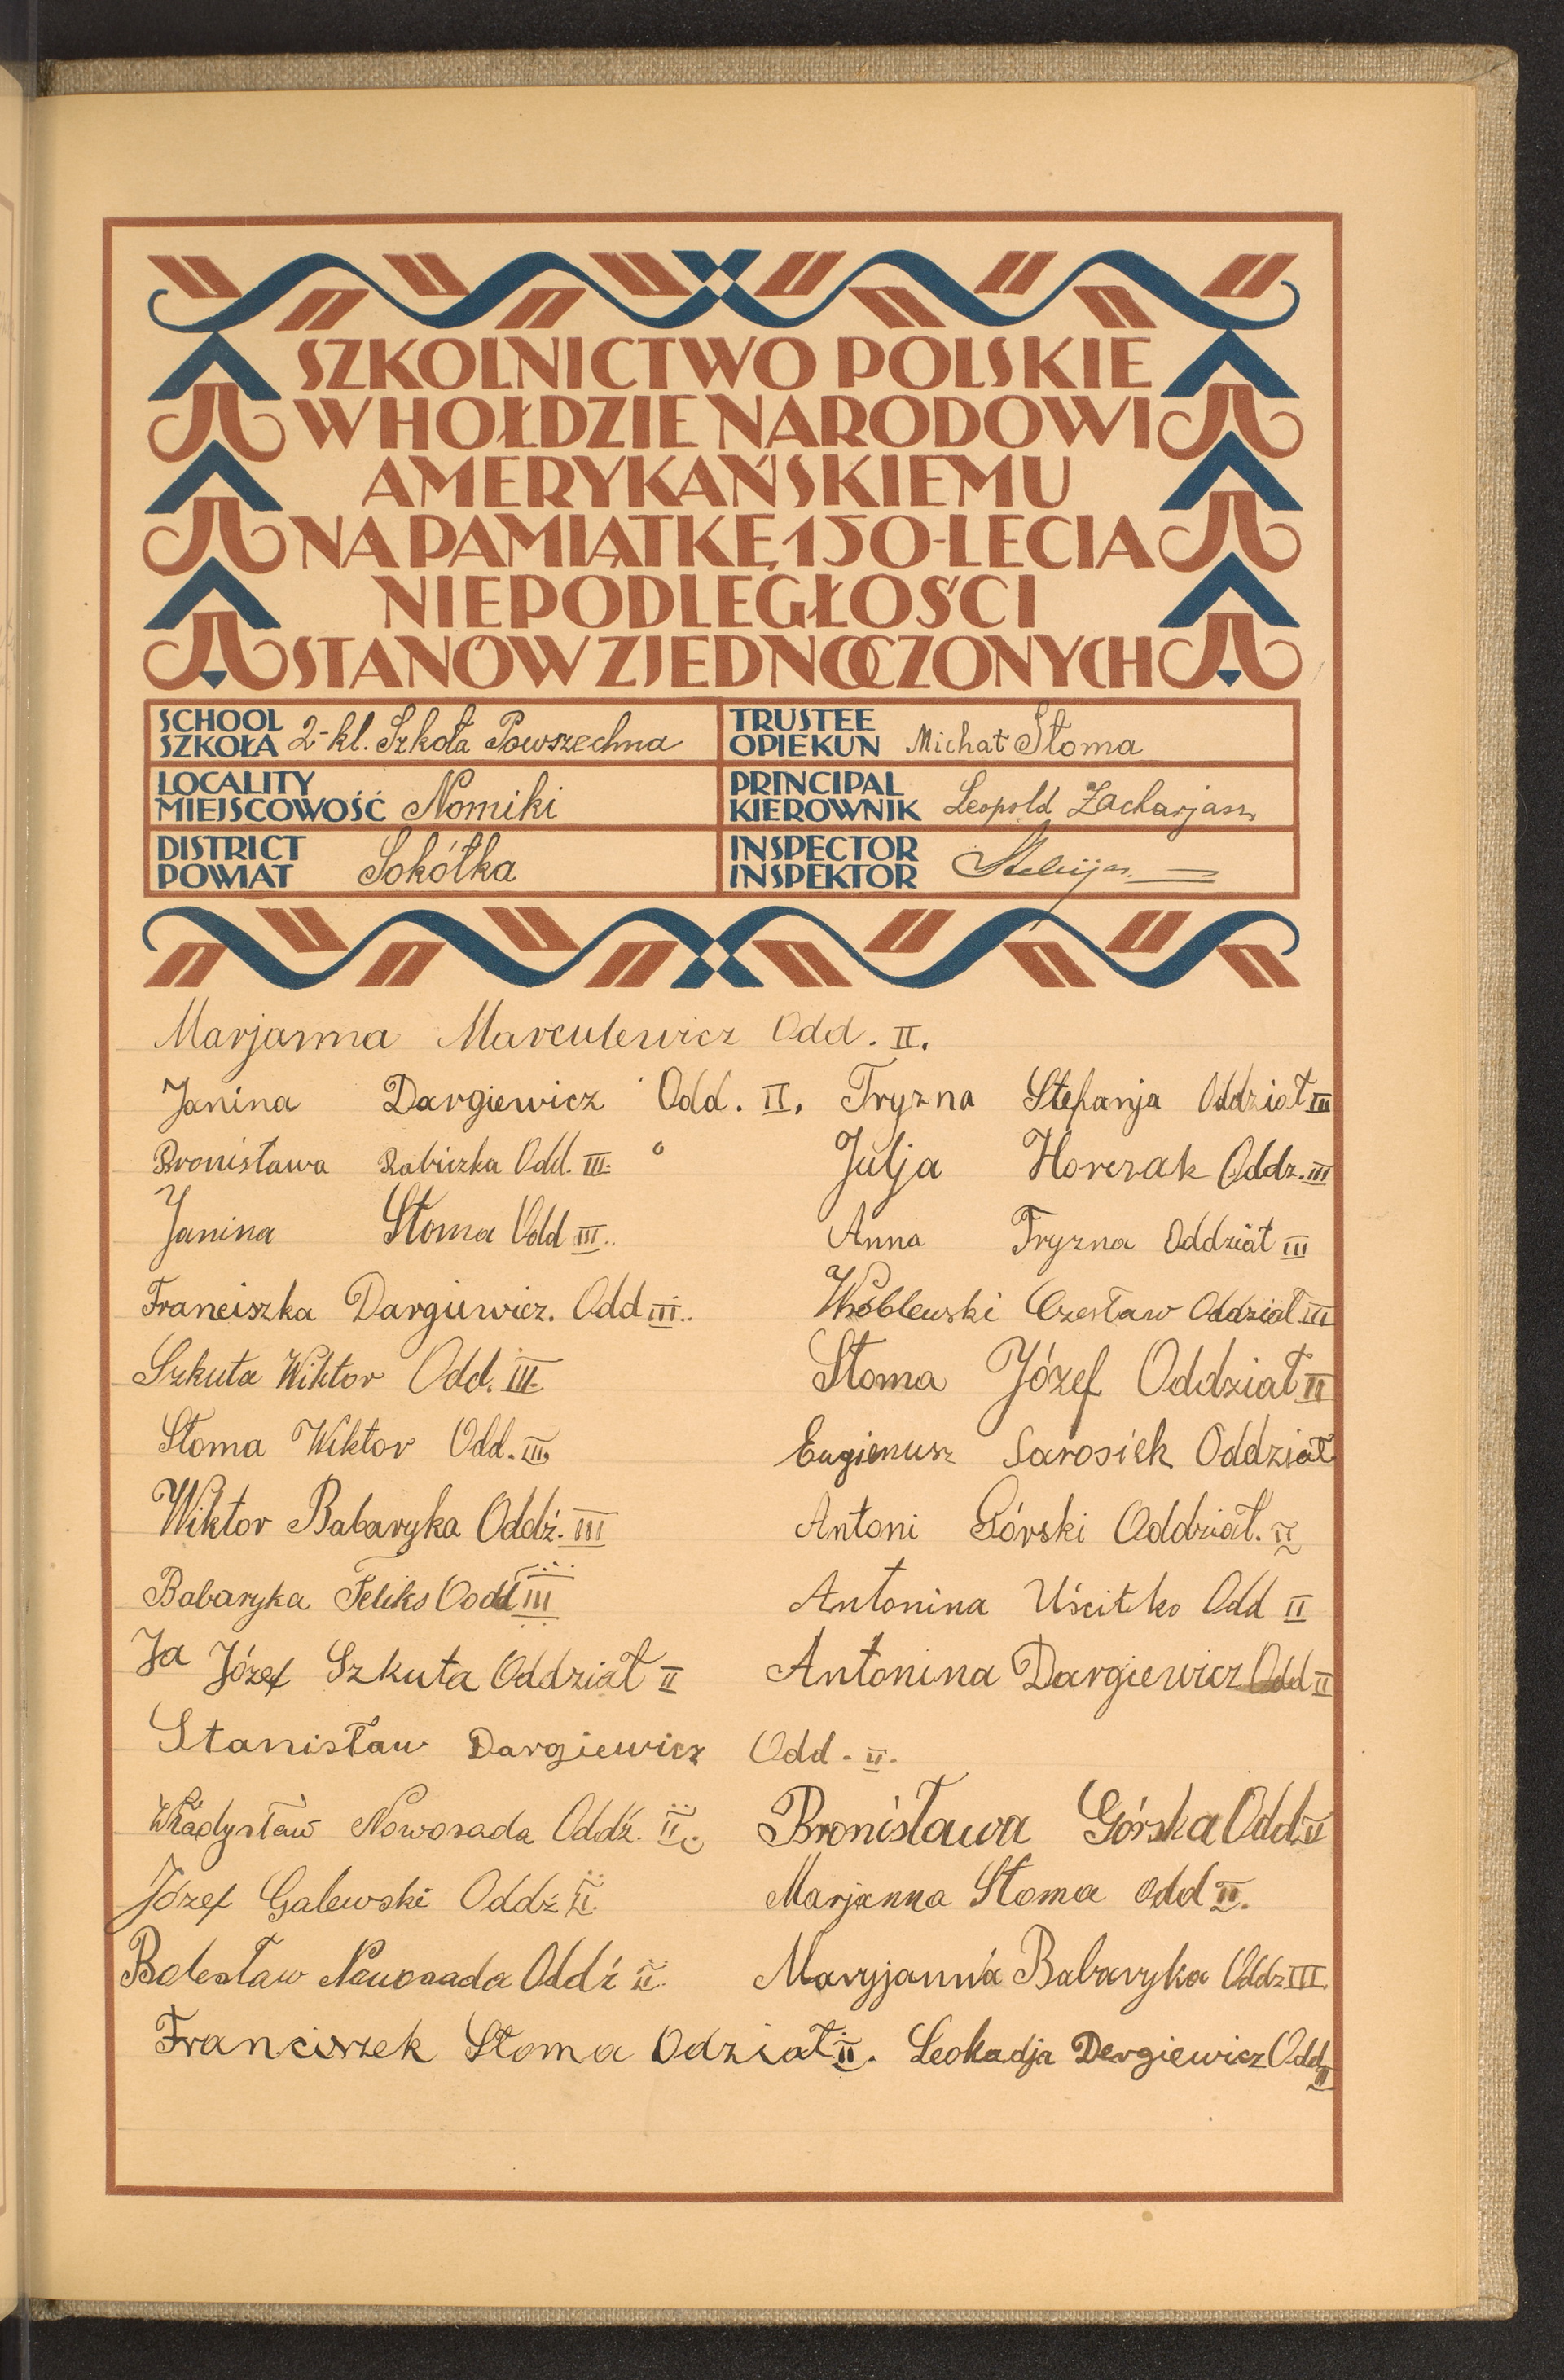 SZKOLNICTWO POLSKIE
W HOŁDZIE NARODOWI
AMERYKAŃSKIEMU
NA PAMIĄTKĘ 150-LECIA
NIEPODLEGŁOŚCI
STANÓW ZJEDNOCZONYCH
SCHOOL
SZKOŁA 2-kl. Szkoła Powszechna
TRUSTEE
OPIEKUN Michał Słoma
LOCALITY
MIEJSCOWOŚĆ Nomiki
PRINCIPAL
KIEROWNIK Leopold Zacharjasz
DISTRICT
POWIAT Sokółka
INSPECTOR
INSPEKTOR
Marjanna Marculewicz Odd. II.
Janina Dargiewicz Odd. II. Tryzna Stefanja Oddział III
Bronisława Babiczka Odd. III. Julja Horczak Oddz. III
Janina Słoma Odd III.. Anna Tryzna Oddział III
Franciszka Dargiewicz. Odd III.. Wróblewski Czesław Oddział III
Szkuta Wiktor Odd. III. Słoma Józef Oddział II
Słoma Wiktor Odd. III. Eugienusz Sarosiek Oddział
Wiktor Babaryka Oddź. III Antoni Górski Oddział. II
Babaryka Feliks Oodd III Antonina Uścitko Odd II
Ja Józef Szkuta Oddział II Antonina Dargiewicz Odd II
Stanisław Dargiewicz Odd. II.
Władysław Nowosada Oddź. II. Bronisława Górska Odd. II
Józef Galewski Oddź II. Marjanna Słoma Odd II.
Bolesław Nowosada Oddź II. Maryjanna Babaryka Oddz III
Franciszek Słoma Odział II. Leokadja Dergiewicz Odd II